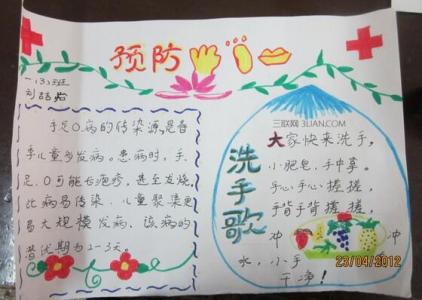 预防
一(3)班
刘喆岩
手足口病的传染源是春
季儿童多发病。患病时,手、
足、口可能长疱疹,甚至发烧。
此病易传染,儿童聚集更
易大规模发病,该病的
潜伏期为2-3天。
三联网 3LIAN.COM
洗手歌
大家快来洗手,
小肥皂,手中拿。
手心手心搓搓,
手背手背搓搓,
冲冲
水,小手
干净!
23/04/2012